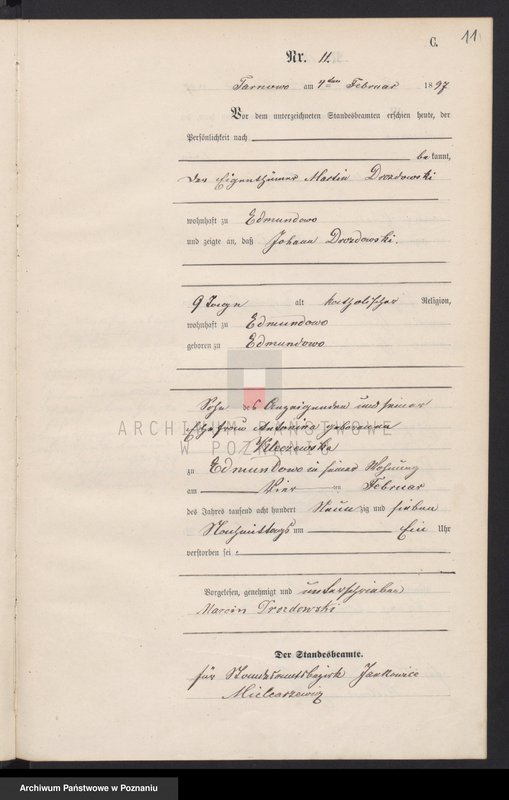 C.
11
Nr. 11.
Tarnowo am 4ten Februar 1897
Vor dem unterzeichneten Standesbeamten erschien heute, der
Persönlichkeit nach
be kannt,
der Eigenthümer Martin Drozdowski
wohnhaft zu Edmundowo
und zeigte an, daß Johann Drozdowski.
9 Tage alt katholischer Religion,
wohnhaft zu Edmundowo
geboren zu Edmundowo
Sohn des Anzeigenden und seiner
Ehefrau Antonina geborenen
ARCHIWUM PAŃSTWOWE
W POZNANIU
zu Edmundowo in seiner Wohnung
am Vier ten Februar
des Jahres tausend acht hundert Neun zig und sieben
Nachmittags um Ein Uhr
verstorben sei.
Vorgelesen, genehmigt und unterschrieben
Marcin Drozdowski
Der Standesbeamte.
für Standesamtsbezirk Jankowice
Archiwum Państwowe w Poznaniu